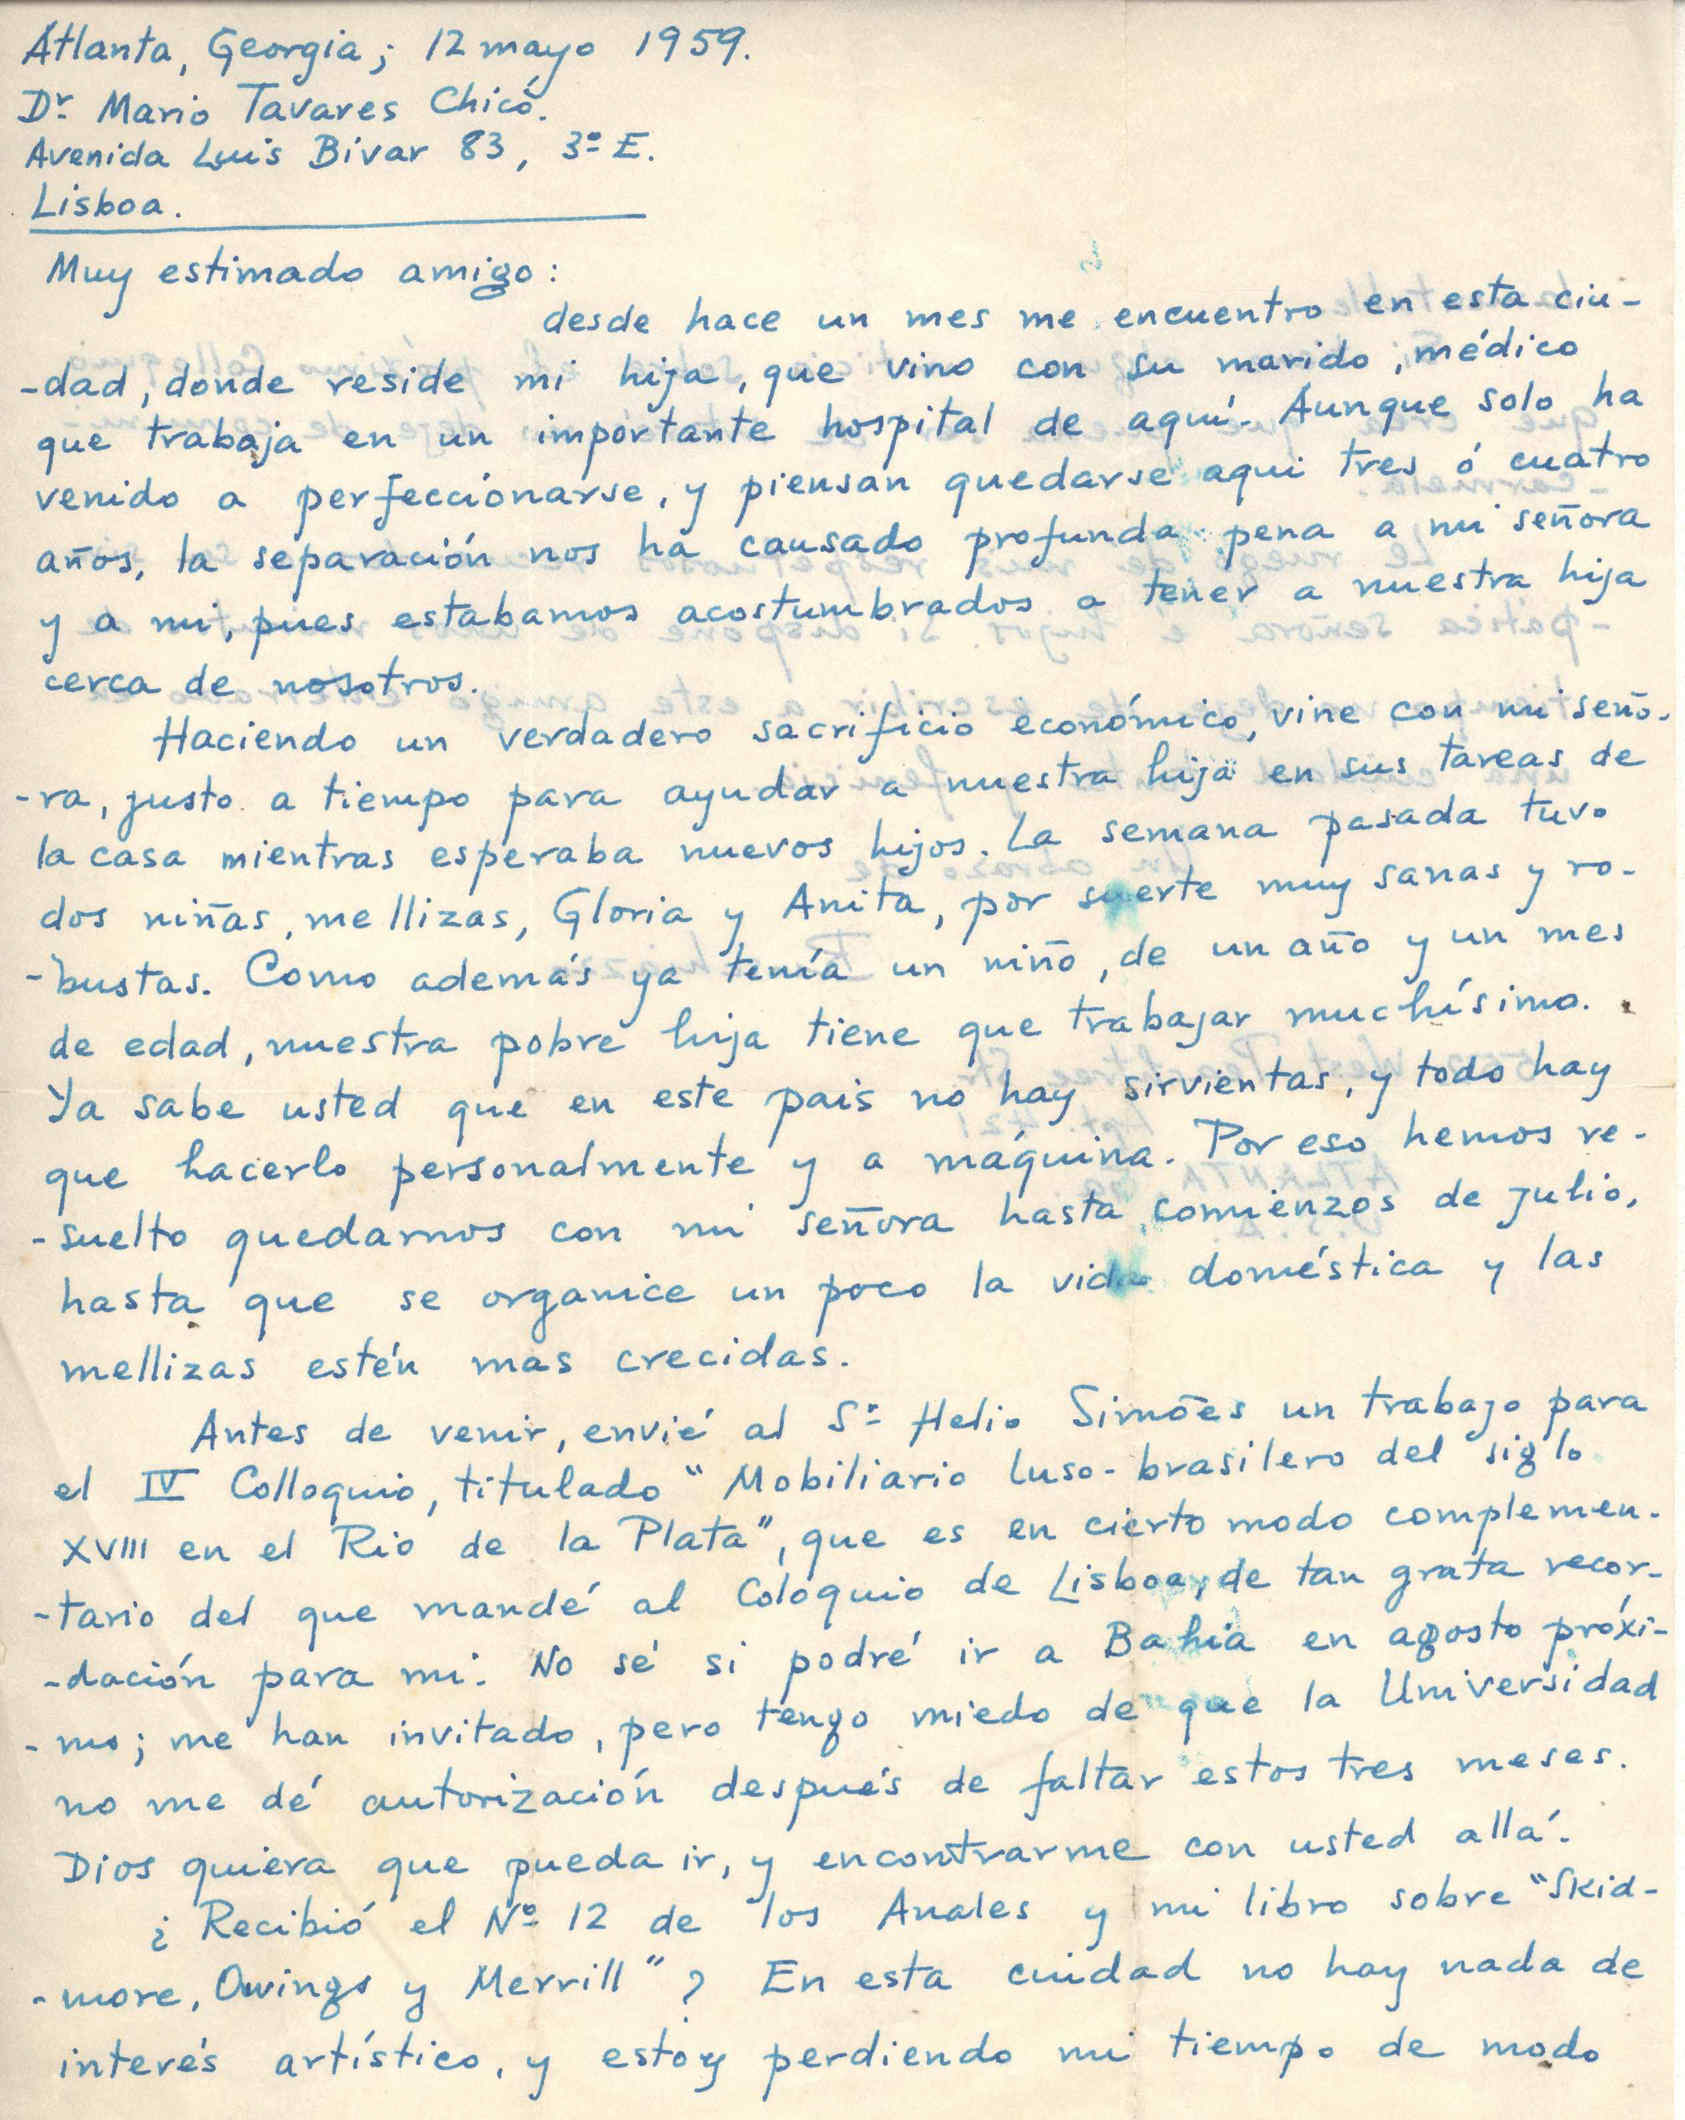 Atlanta, Georgia; 12 mayo 1959.
Dr. Mario Tavares Chicó.
Avenida Luis Bivar 83, 3º E.
Lisboa.
Muy estimado amigo:
desde hace un mes me encuentro en esta ciu-
-dad, donde reside mi hija, que vino con su marido, médico
que trabaja en un importante hospital de aquí. Aunque solo ha
venido a perfeccionarse, y piensan quedarse aqui tres ó cuatro
años, la separación nos ha causado profunda pena a mi señora
y a mi, pues estabamos acostumbrados a tener a nuestra hija
cerca de nosotros.
Haciendo un verdadero sacrificio económico, vine con mi seño-
-ra, justo a tiempo para ayudar a nuestra hija en sus tareas de
la casa mientras esperaba nuevos hijos. La semana pasada tuvo
dos niñas, mellizas, Gloria y Anita, por suerte muy sanas y ro-
-bustas. Como además ya tenía un niño, de un año y un mes
de edad, nuestra pobre hija tiene que trabajar muchísimo.
Ya sabe usted que en este pais no hay sirvientas, y todo hay
que hacerlo personalmente y a máquina. Por eso hemos re-
-suelto quedarnos con mi señora hasta comienzos de julio,
hasta que se organice un poco la vida doméstica y las
mellizas estén mas crecidas.
Antes de venir, envié al Sr. Helio Simões un trabajo para
el IV Colloquio, titulado "Mobiliario luso-brasilero del siglo
XVIII en el Rio de la Plata", que es en cierto modo complemen-
-tario del que mandé al Coloquio de Lisboa, de tan grata recor-
-dación para mi. No sé si podré ir a Bahia en agosto próxi-
-mo; me han invitado, pero tengo miedo de que la Universidad
no me dé autorización después de faltar estos tres meses.
Dios quiera que pueda ir, y encontrarme con usted allá.
¿Recibió el Nº 12 de los Anales y mi libro sobre "Skid-
-more, Owings y Merrill"? En esta cuidad no hay nada de
interés artístico, y estoy perdiendo mi tiempo de modo